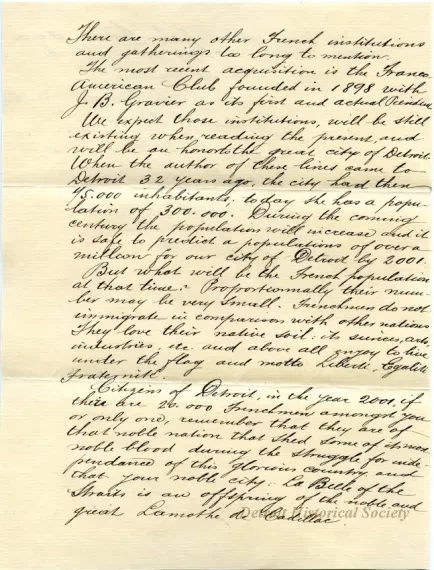 There are many other French institutions
and gatherings too long to mention.
The most recent acquisition is the Franco
American Club founded in 1898 with
J. B. Gravier as its first and actual President
We expect those institutions, will be still
existing when reading the present, and
will be an honor to the great city of Detroit.
When the author of these lines came to
Detroit 32 years ago, the city had then
75.000 inhabitants, today she has a popu-
lation of 300.000. During the coming
century the population will increase and it
is safe to predict a populations of over a
million for our city of Detroit by 2001.
But what will be the French population
at that time? Proportionnally their num-
ber may be very small. Frenchmen do not
immigrate in comparison with other nations
They love their native soil: its sciences, arts,
industries, etc. and above all enjoy to live
under the flag and motto Liberté, Egalité
Fraternité.
Citizens of Detroit, in the year 2001, if
there are 20.000 Frenchmen amongst you
or only one, remember that they are of
that noble nation that shed some of its
noble blood during the struggle for inde-
pendance of this glorious country and
that your noble city: La Belle of the
Straits is an offspring of the noble and
great Lamothe de Cadillac.
Detroit Historical Society